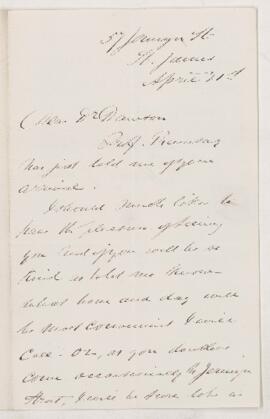 57 Jermyn St.
St. James
April 21st
Dear Dr Dawson
Prof. Ramsay
has just told me of your
arrival.
I should much like to
have the pleasure of seeing
you and if you will be so
kind as to tell me
what hour and day will
be most convenient I will
call - Or, as you doubtless
come occasionally to Jermyn
Street, I will be here